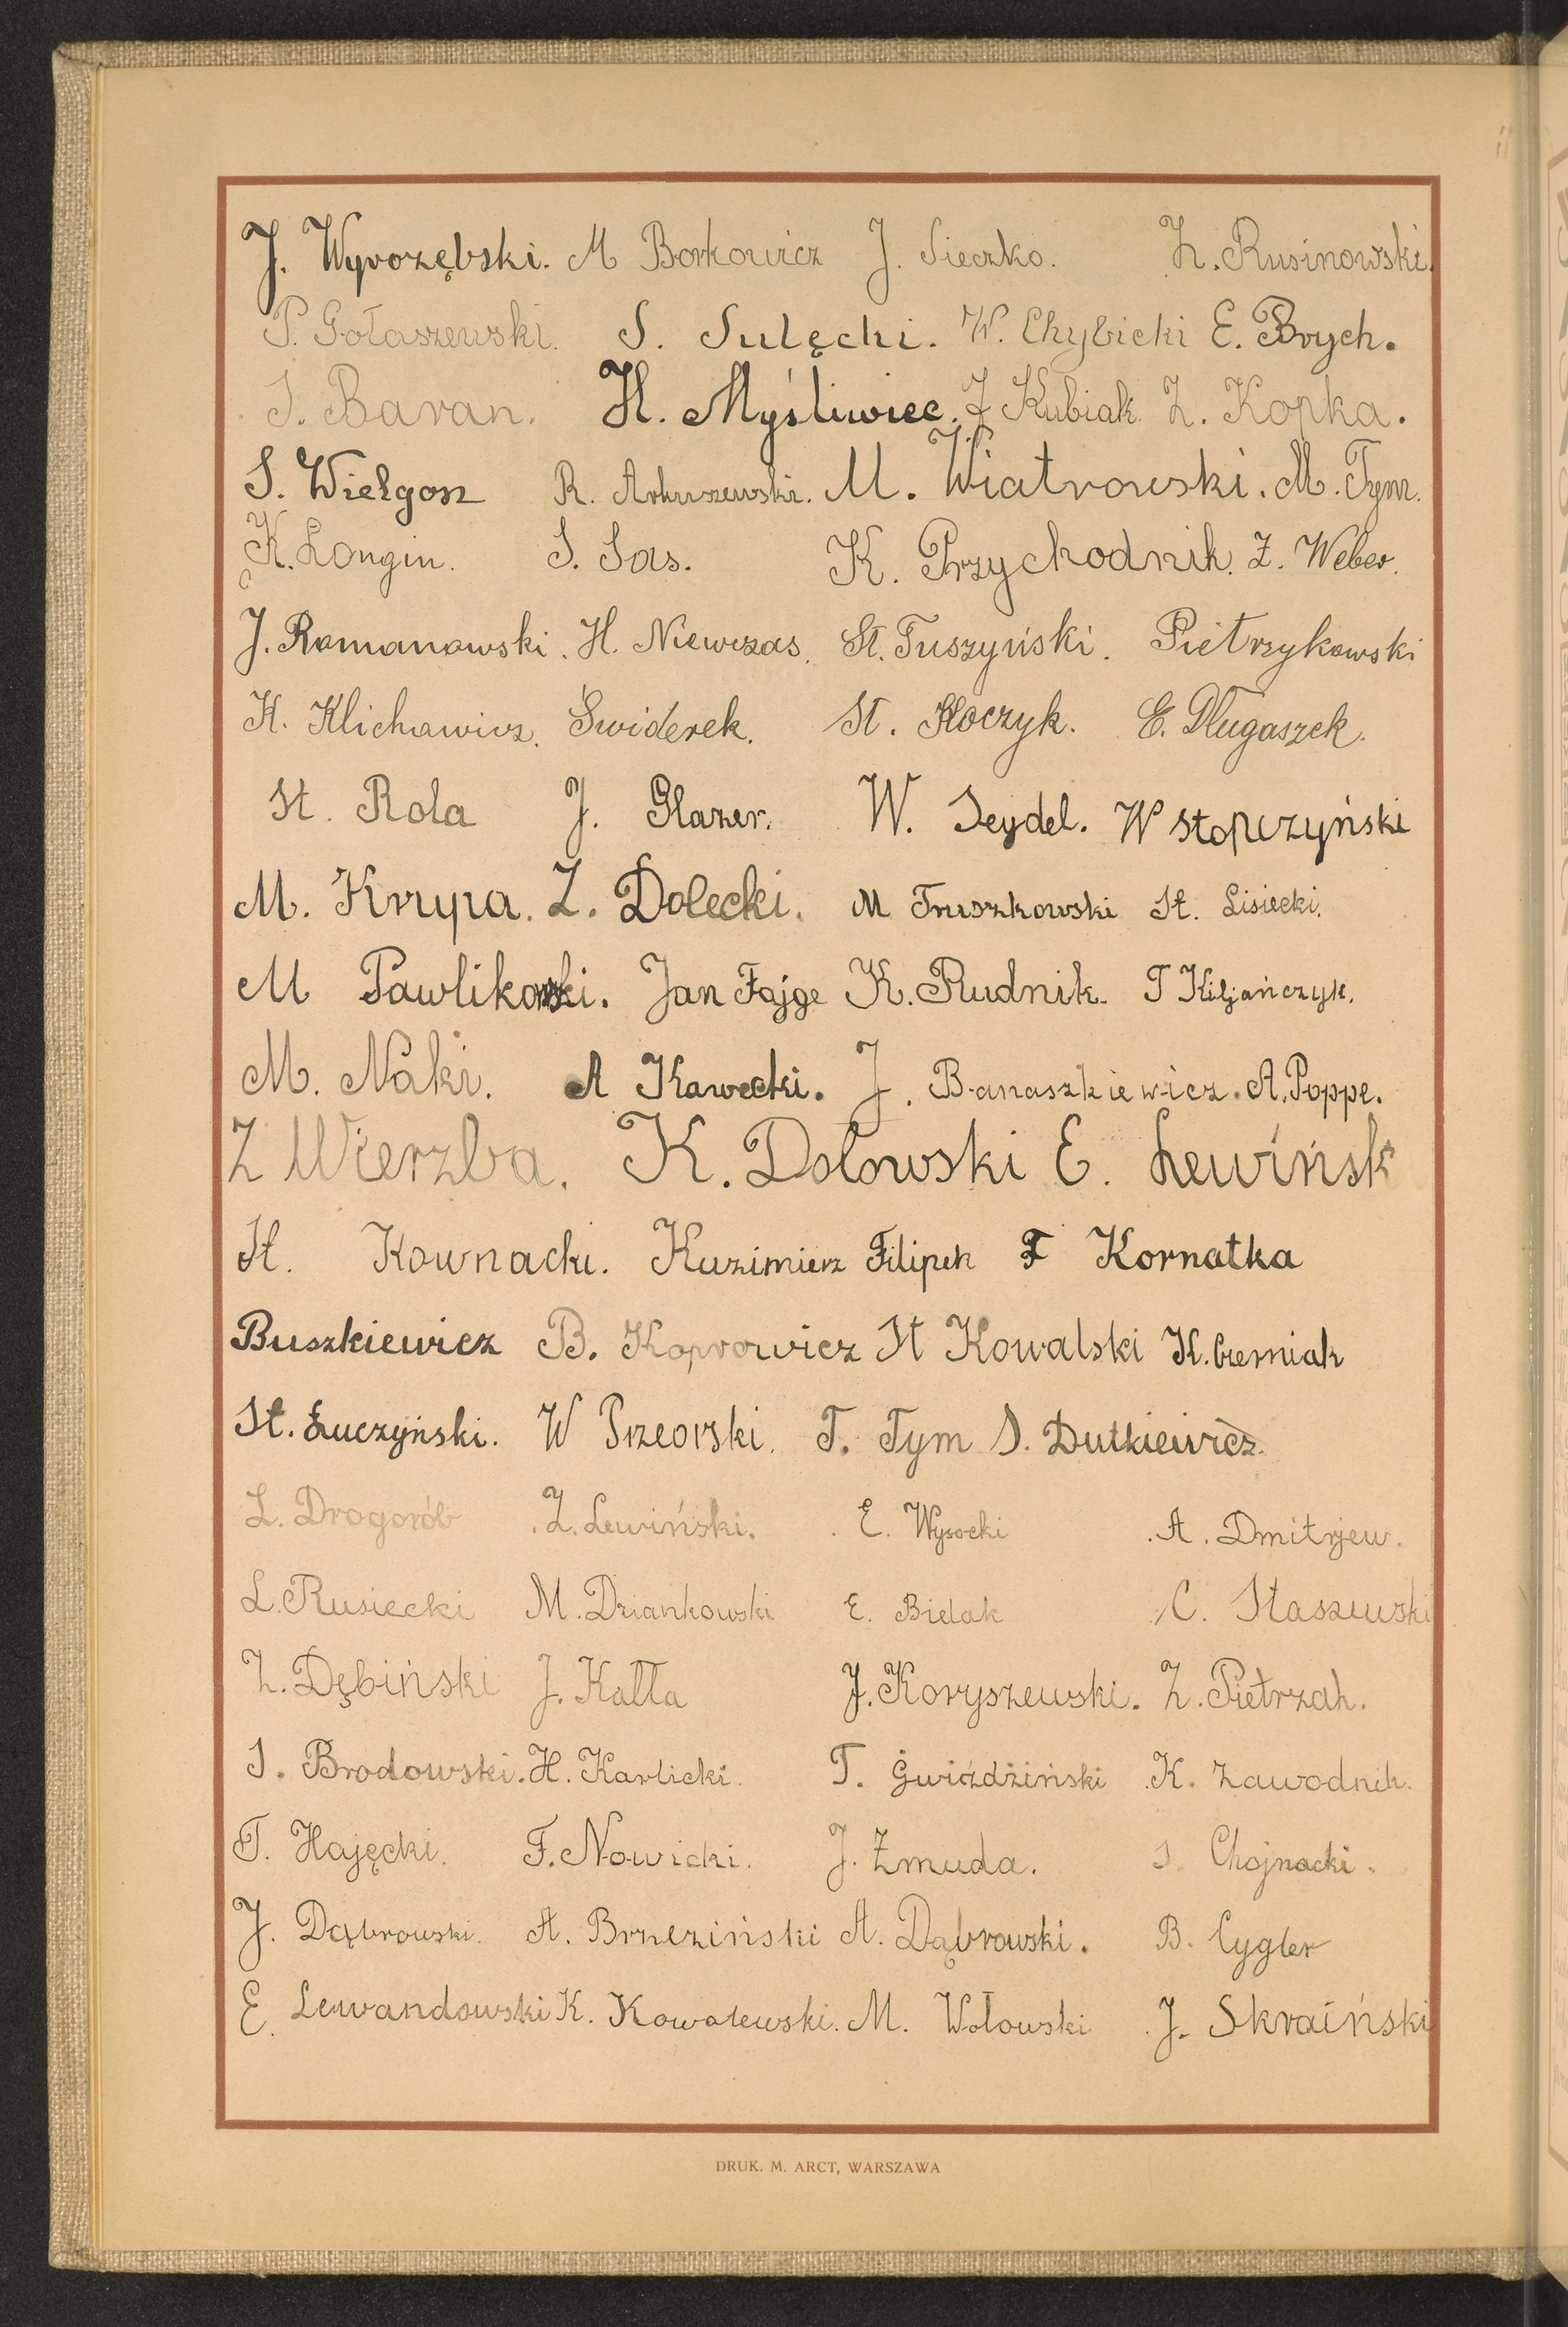 J. Wyrozębski. M Borkowicz J. Sieczko. Z. Rusinowski.
P. Gołaszewski. S. Sulęcki. W. Chybicki E. Brych.
S. Baran. H. Myśliwiec. J Kubiak. Z. Kopka.
S. Wielgosz R. Arkuszewski. M. Wiatrowski. M. Tym.
K. Longin. S. Sas. K. Przychodnik. Z. Weber.
J. Romanowski. H. Niewczas. St. Tuszyński. Pietrzykowski
K. Klichawicz. Świderek. St. Kłoczyk. E. Długaszek.
St. Rola J. Glazer. W. Seydel. W Stopczyński
M. Krzypa. Z. Dolecki. M Truszkowski St. Lisiecki.
M Pawlikowski. Jan Fajge K. Rudnik. T Kiljańczyk.
M. Naki. A Kawecki. J. Banaszkiewicz. A. Poppe.
Z Wierzba. K. Dołowski E. Lewińsk
St. Kownacki. Kazimierz Filipek F Kornatka
Buszkiewicz B. Koprowicz St Kowalski K. Czerniak
St. Łuczyński. W Przeorski. T. Tym S. Dutkiewicz.
L. Drogorób Z. Lewiński. E. Wysocki A. Dmitrjew.
L. Rusiecki M. Dziankowski E. Bielak C. Staszewski
Z. Dębiński J. Kałła J. Koryszewski. Z. Pietrzak.
S. Brodowski. H. Karlicki. T. Gwiździński K. Zawodnik.
T. Hajęcki. F. Nowicki. J. Żmuda. S. Chojnacki.
J. Dąbrowski. A. Brzeziński A. Dąbrowski. B. Cygler
E. Lewandowski K. Kowalewski. M. Wołowski J. Skraiński
DRUK. M. ARCT, WARSZAWA